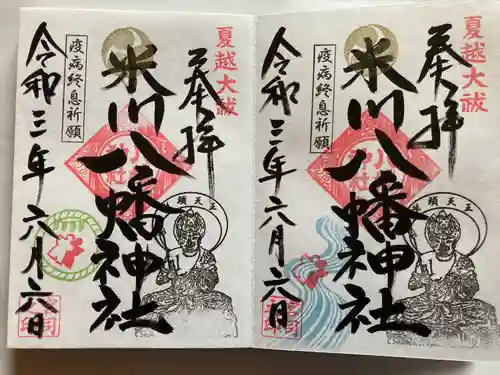 夏越大祓
奉拝
頭天王
米川八幡神社
疫病終息祈願
令和三年六月六日
夏越大祓
奉拝
頭天王
米川八幡神社
疫病終息祈願
令和三年六月六日